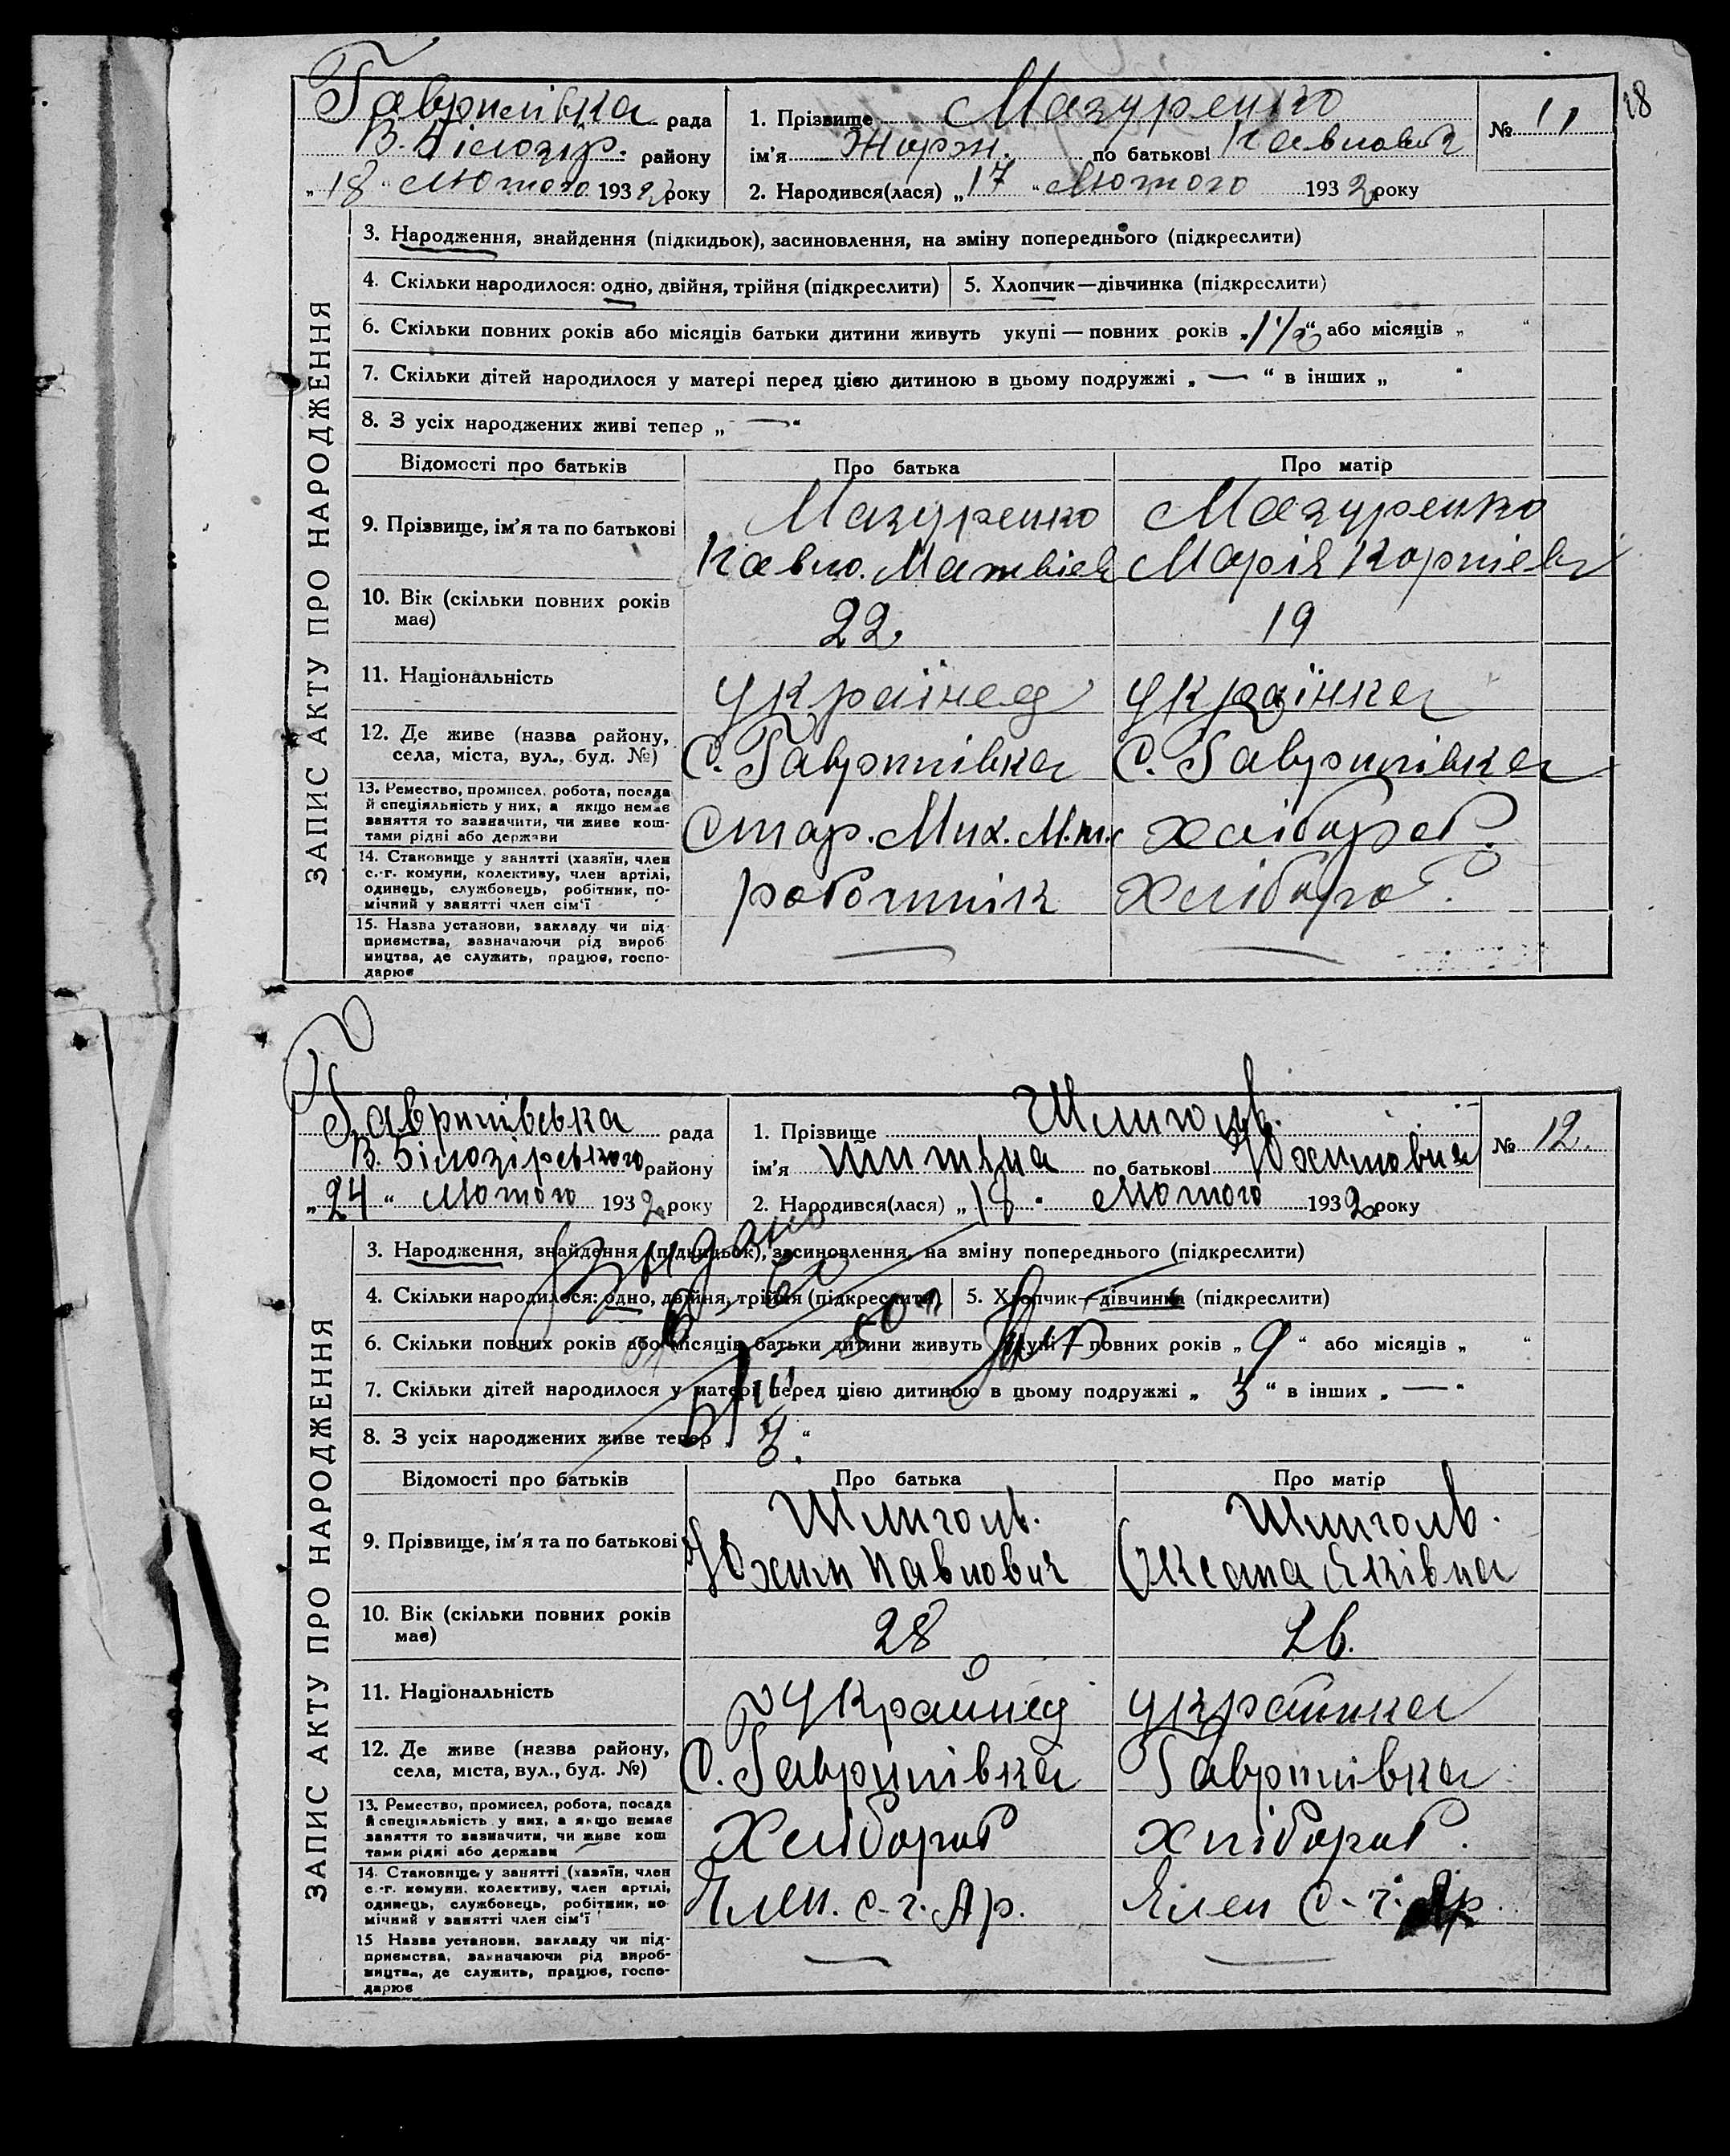 18
Гаврилівка рада
В. Білозір. району
„18“ Лютого 1932 року
1. Прізвище Мазуренко
ім’я Жорж. по батькові Павлович
2. Народився(лася) „17“ Лютого 1932 року
№ 11
ЗАПИС АКТУ ПРО НАРОДЖЕННЯ
3. Народження, знайдення (підкидьок), засиновлення, на зміну попереднього (підкреслити)
4. Скільки народилося: одно, двійня, трійня (підкреслити)
5. Хлопчик—дівчинка (підкреслити)
6. Скільки повних років або місяців батьки дитини живуть укупі — повних років „1 1/2“ або місяців „ “
7. Скільки дітей народилося у матері перед цією дитиною в цьому подружжі „ — “ в інших „ “
8. З усіх народжених живі тепер „ — “
Відомості про батьків Про батька Про матір
9. Прізвище, ім’я та по батькові
Мазуренко Мазуренко
Павло. Матвієв Марія Корнієв
10. Вік (скільки повних років має)
22. 19
11. Національність
українец українка
12. Де живе (назва району, села, міста, вул., буд. №)
С. Гаврилівка С. Гаврилівка
13. Ремество, промисел, робота, посада
й спеціяльність у них, а якщо немає
заняття то зазначити, чи живе кош-
тами рідні або держави
Хлібороб
14. Становище у занятті (хазяїн, член
с.-г. комуни, колективу, член артілі,
одинець, службовець, робітник, по-
мічний у занятті член сім’ї
роботнік Хлібороб.
15. Назва установи, закладу чи під-
приємства, зазначаючи рід вироб-
ництва, де служить, працює, госпо-
дарює
Гаврилівська рада
В. Білозірського району
„24“ Лютого 1932 року
1. Прізвище Шлиголь.
по батькові Юхимовна
2. Народився(лася) „18“ Лютого 1932 року
№ 12.
ЗАПИС АКТУ ПРО НАРОДЖЕННЯ
3. Народження, знайдення (підкидьок), засиновлення, на зміну попереднього (підкреслити)
4. Скільки народилося: одно, двійня, трійня (підкреслити)
5. Хлопчик—дівчинка (підкреслити)
6. Скільки повних років або місяців батьки дитини живуть укупі — повних років „9“ або місяців „ “
7. Скільки дітей народилося у матері перед цією дитиною в цьому подружжі „3“ в інших „ — “
8. З усіх народжених живе тепер „3.“
Видано
Відомості про батьків Про батька Про матір
9. Прізвище, ім’я та по батькові
Шлиголь. Шлиголь.
Юхим Павлович Оксана Яківна
10. Вік (скільки повних років має)
28 26.
11. Національність
Українец українка
12. Де живе (назва району, села, міста, вул., буд. №)
С. Гаврилівка Гаврилівка
13. Ремество, промисел, робота, посада
й спеціяльність у них, а якщо немає
заняття то зазначити, чи живе кош
тами рідні або держави
Хлібороб хлібороб.
14. Становище у занятті (хазяїн, член
с.-г. комуни, колективу, член артілі,
одинець, службовець, робітник, по-
мічний у занятті член сім’ї
Член. с-г. Ар. Член с-г. Ар.
15 Назва установи, закладу чи під-
приємства, зазначаючи рід вироб-
ництва, де служить, працює, госпо-
дарює